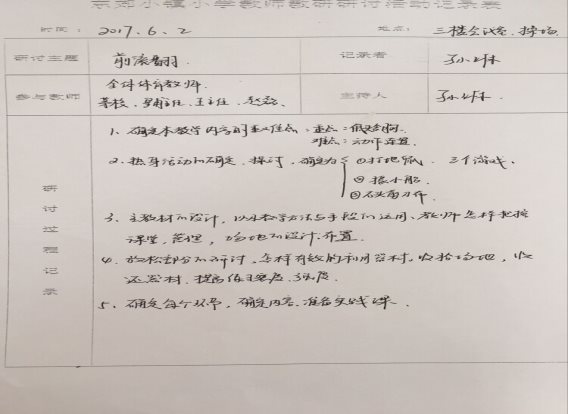 京郊小镇小学教师教研研讨活动记录表
时间: 2017.6.2 地点: 三楼会议室、操场
研讨主题 前滚翻 记录者 孙小林
参与教师 全体体育教师 主持人 孙小林
主任、王主任、赵
1、确定本教学内容的重难点、重点:低头含胸
难点:动作连贯
2、热身活动的确定、探讨,确定为 ①打地鼠 三个游戏、
②摇小船
③石头剪刀布
3、主教材的设计,以及教学方法与手段的运用、教师怎样把控
课堂,管理,场地的设计、布置.
4、放松部分的研讨、怎样有效的利用器材、收拾场地,归
还器材、提高练习密度、强度
5、确定每个环节,确定内容、准备实践课.
研讨过程记录